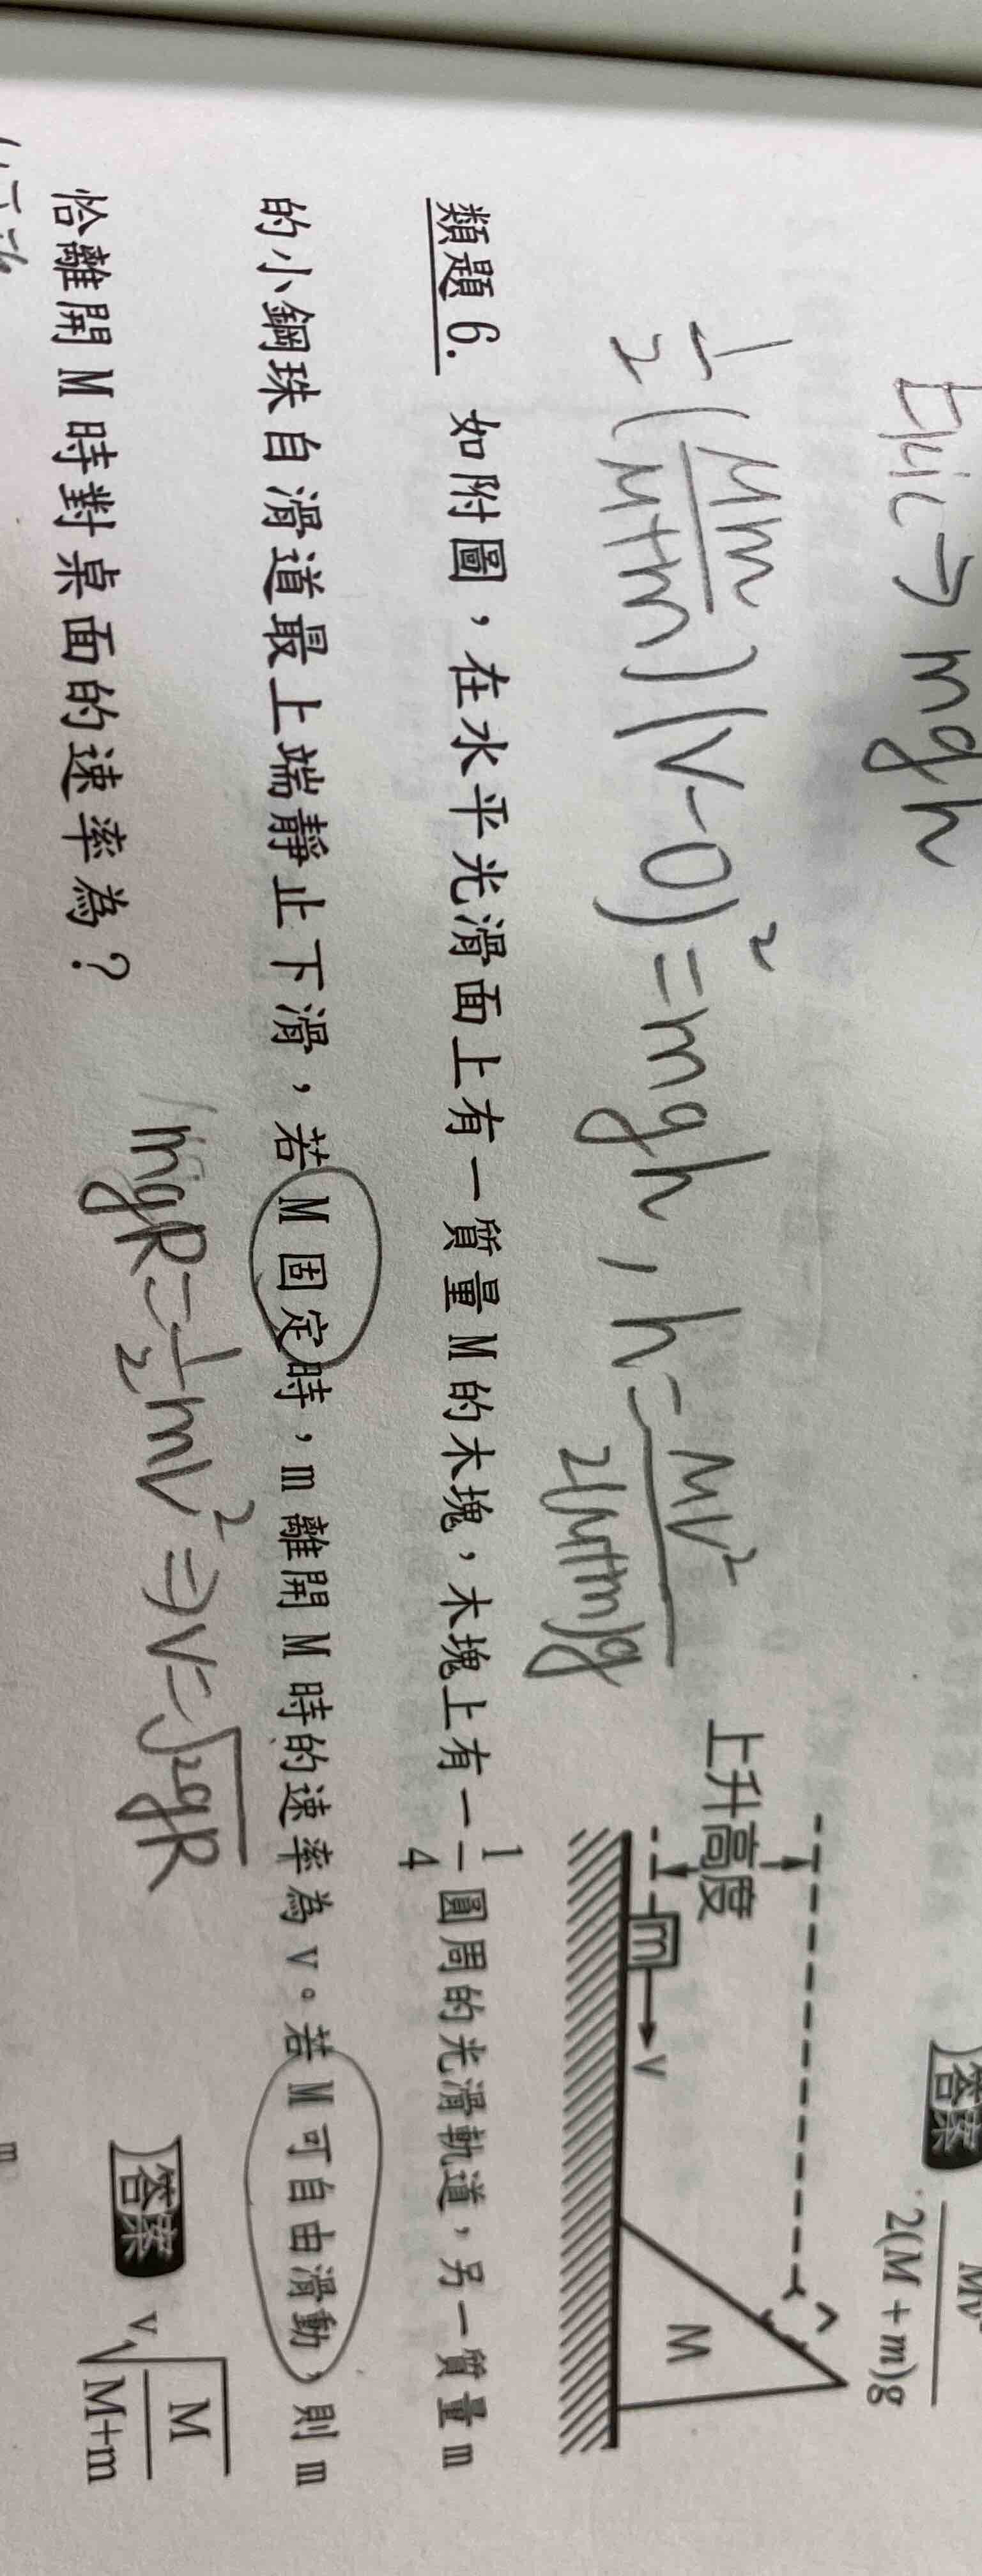 答案
Mv²
2(M + m)g
Eμc → mgh
1/2 (Mm/M+m)(V-0)² = mgh , h = MV²/2(M+m)g
上升高度
m
v
M
類題 6. 如附圖，在水平光滑面上有一質量 M 的木塊，木塊上有一 1/4 圓周的光滑軌道，另一質量 m
的小鋼珠自滑道最上端靜止下滑，若 M 固定時，m 離開 M 時的速率為 v。若 M 可自由滑動，則 m
恰離開 M 時對桌面的速率為？
mgR = 1/2 mV² ⇒ V = √2gR
答案 v√M/M+m
m